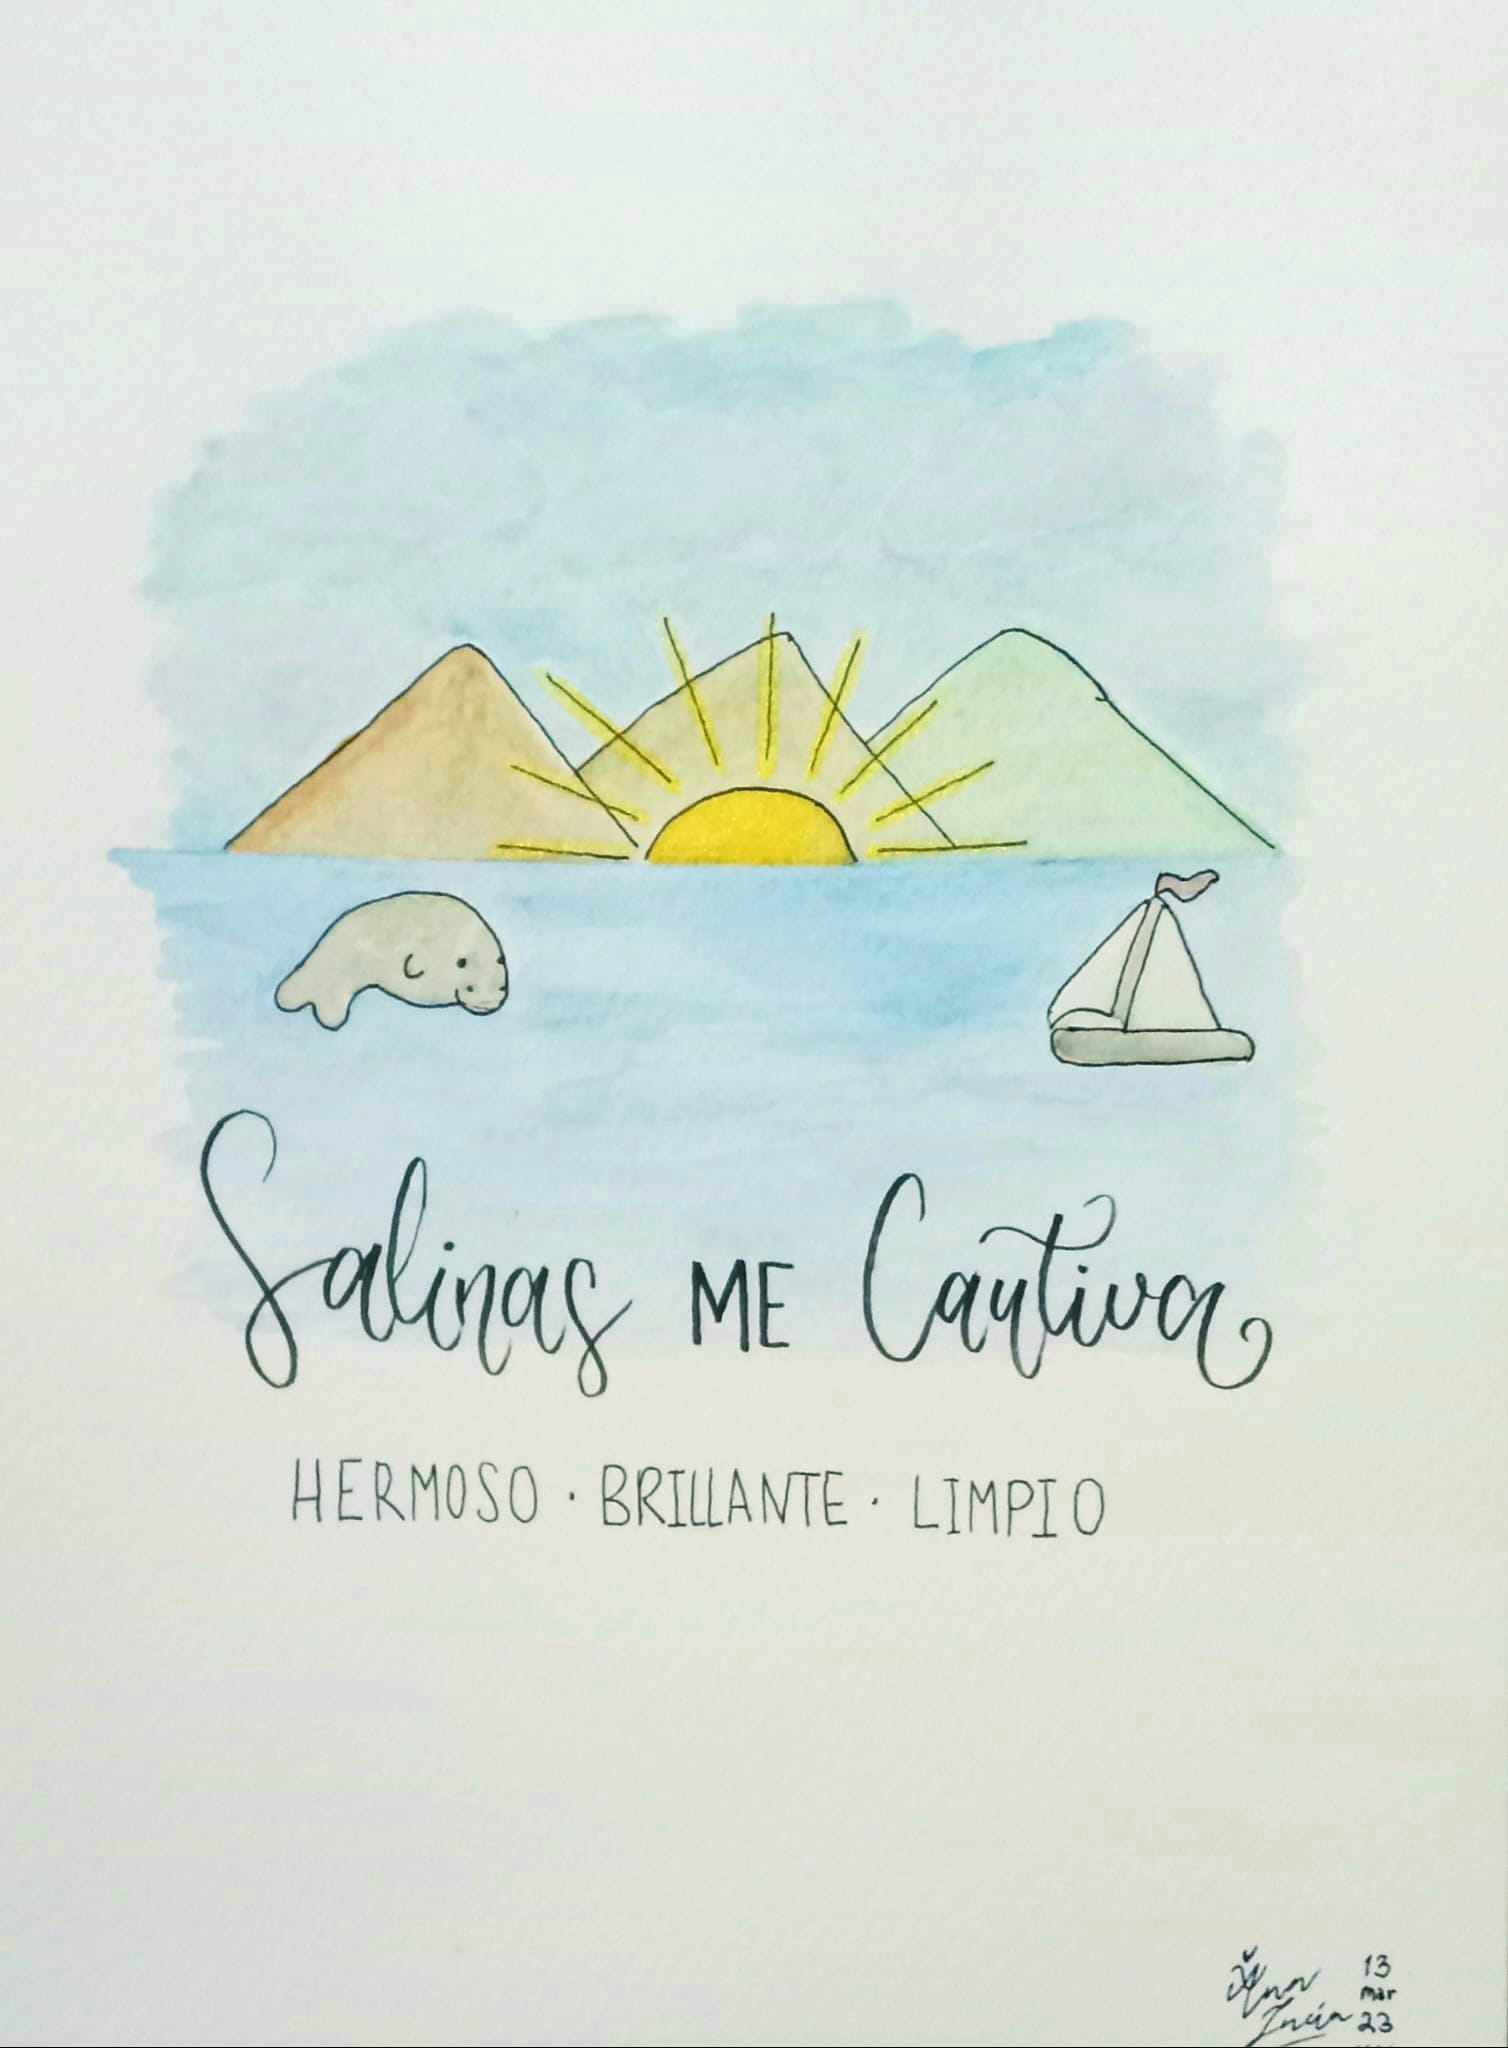 Salinas ME Cautiva
HERMOSO · BRILLANTE · LIMPIO
Ana 13
Lucía mar
23